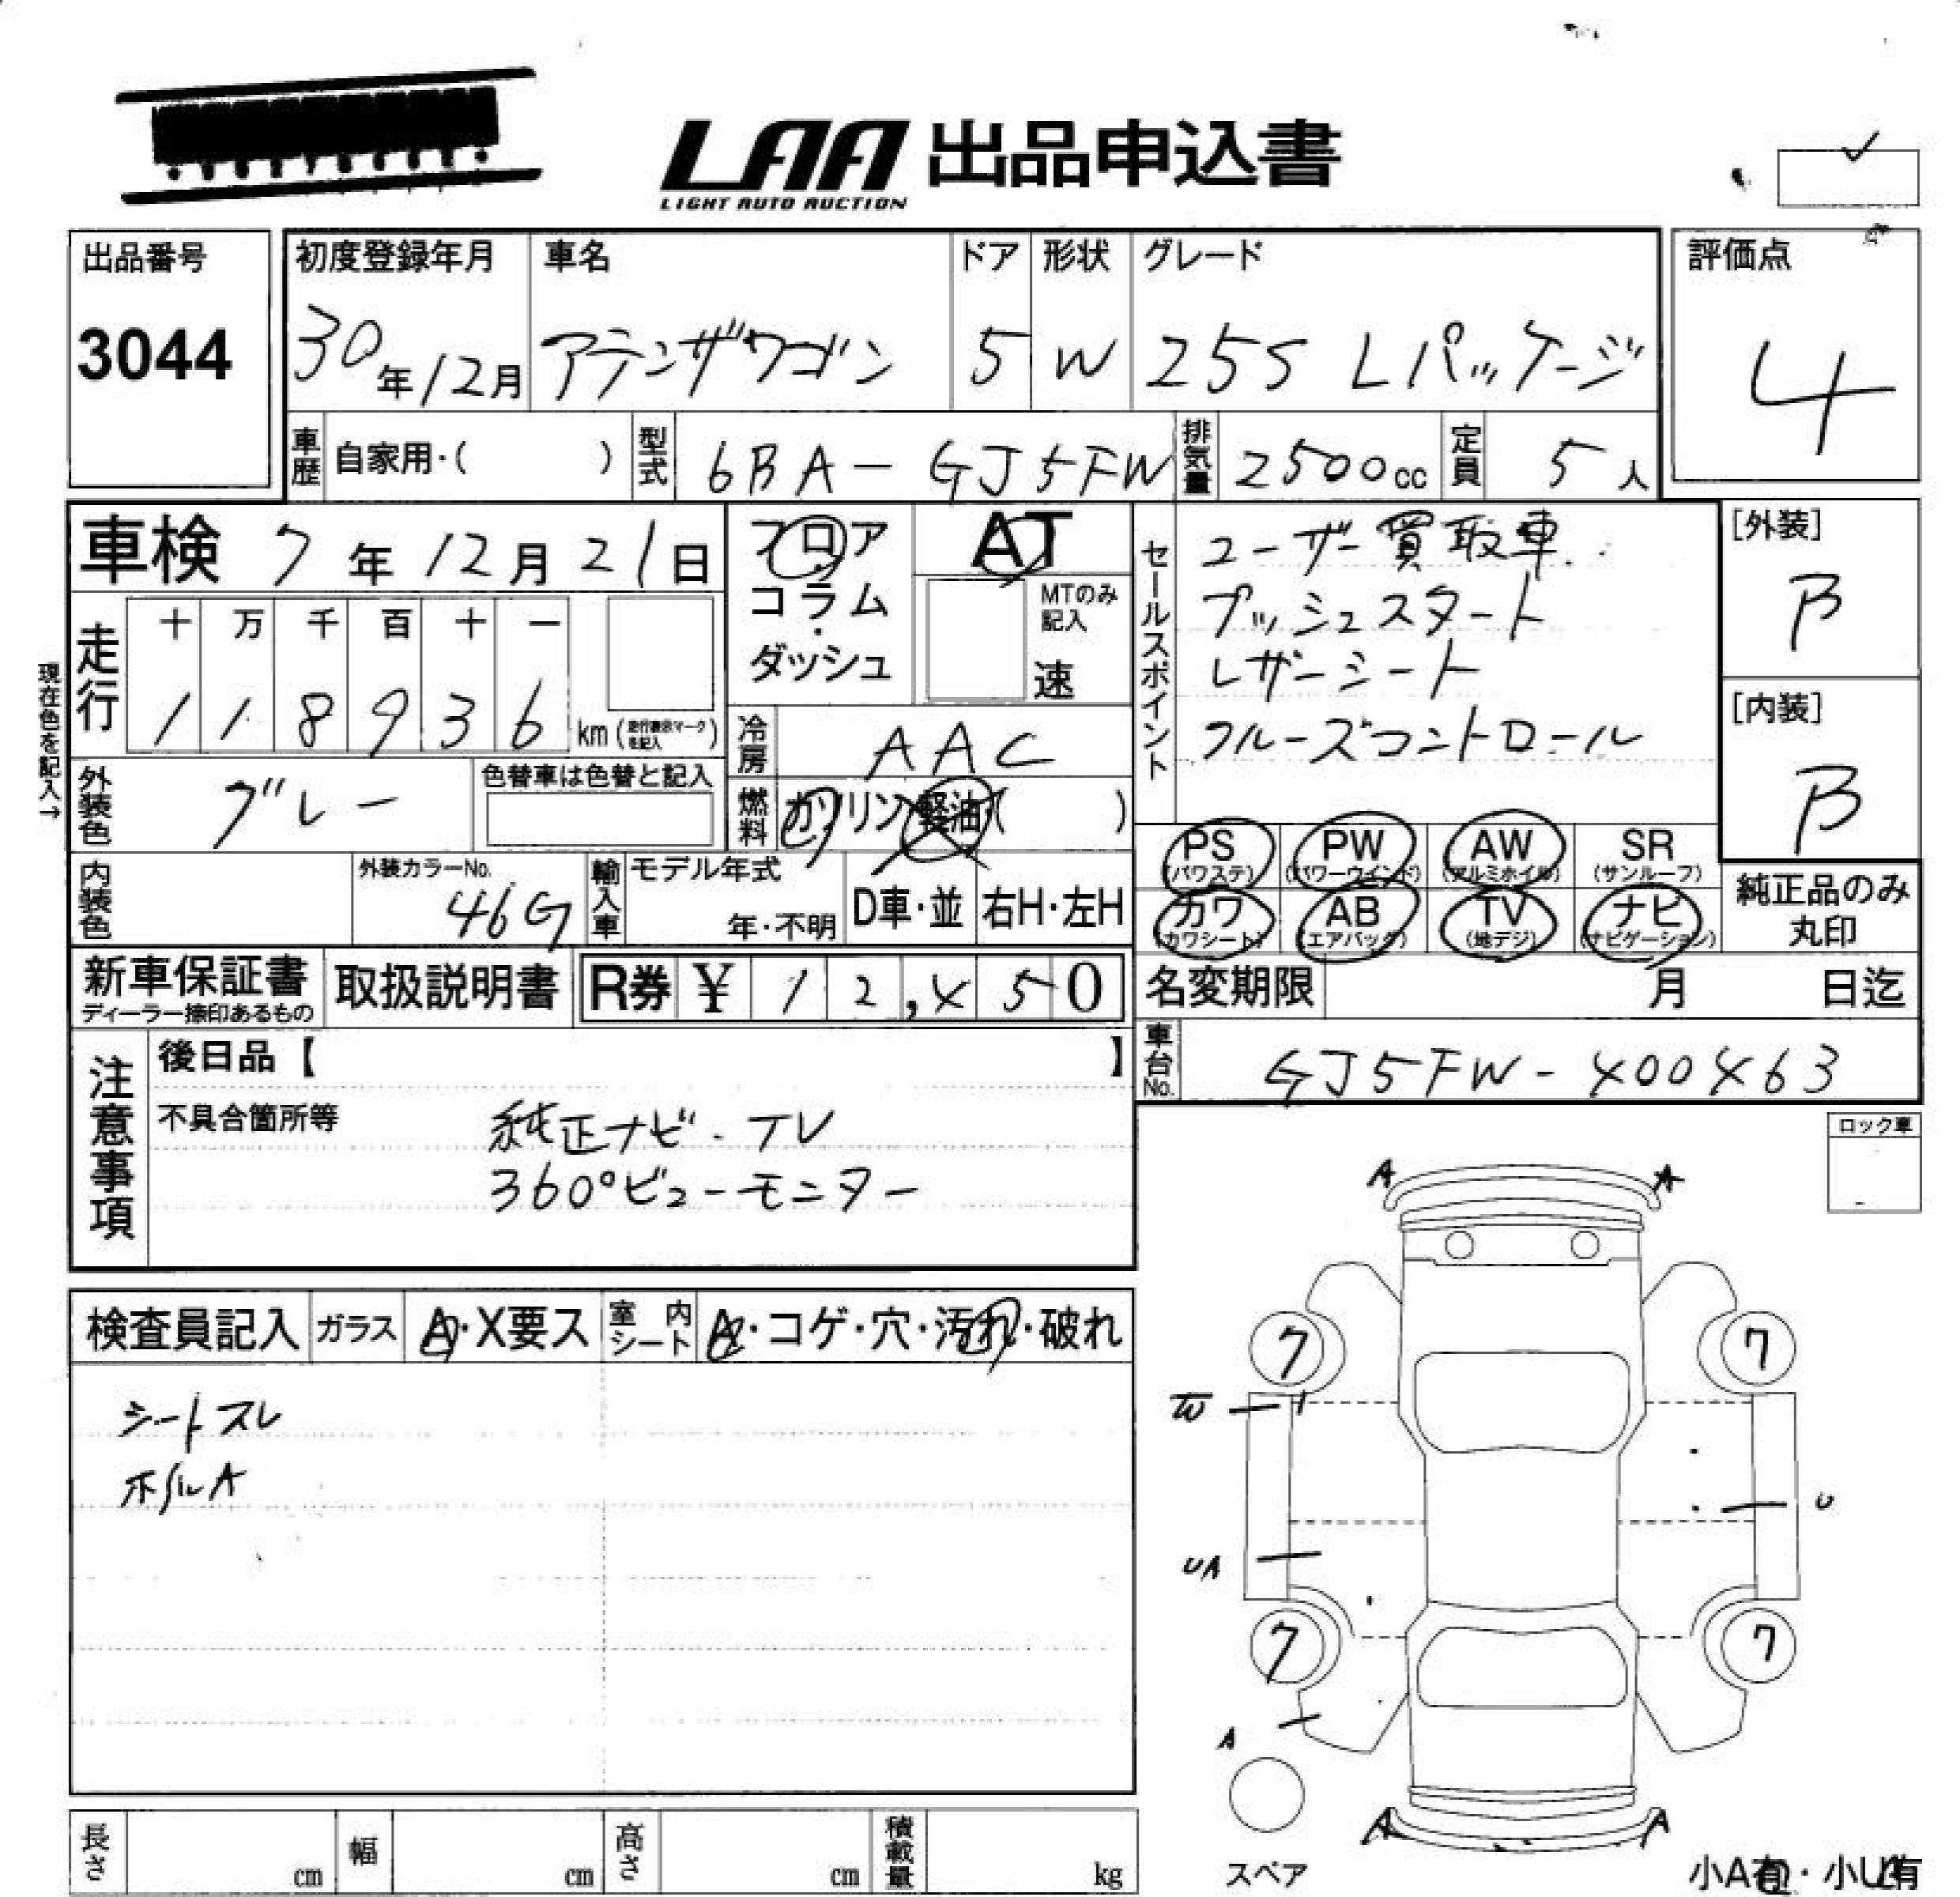 LAA 出品申込書
LIGHT AUTO AUCTION
出品番号
3044
初度登録年月 車名 ドア 形状 グレード
30年12月 アテンザワゴン 5 W 25S Lパッケージ
評価点
4
車歴 自家用・( ) 型式 6BA-GJ5FW 排気量 2500cc 定員 5人
車検 7年12月21日
フロア
コラム・
ダッシュ
AT
MTのみ
記入
速
セールスポイント
ユーザー買取車.
プッシュスタート
レザーシート
クルーズコントロール
[外装]
B
[内装]
B
現在色を記入→
走行
十 万 千 百 十 一
1 1 8 9 3 6 km (走行表示マークを記入)
冷房 AAC
燃料 ガソリン 軽油・( )
外装色 グレー 色替車は色替と記入
PS (パワステ) PW (パワーウインド) AW (アルミホイル) SR (サンルーフ)
カワ (カワシート) AB (エアバッグ) TV (地デジ) ナビ (ナビゲーション)
純正品のみ
丸印
内装色 外装カラーNo. 46G 輸入車 モデル年式 年・不明 D車・並 右H・左H
新車保証書
ディーラー捺印あるもの
取扱説明書 R券 ¥ 12,450
名変期限 月 日迄
車台No. GJ5FW-400463
注意事項
後日品【 】
不具合箇所等
純正ナビ・TV
360°ビューモニター
ロック車
検査員記入 ガラス A・X要ス 室内シート A・コゲ・穴・汚れ・破れ
シートスレ
ホイルA
A A
7 7
W
U
UA
7 7
A
A A
スペア
小A有・小U有
長さ cm 幅 cm 高さ cm 積載量 kg